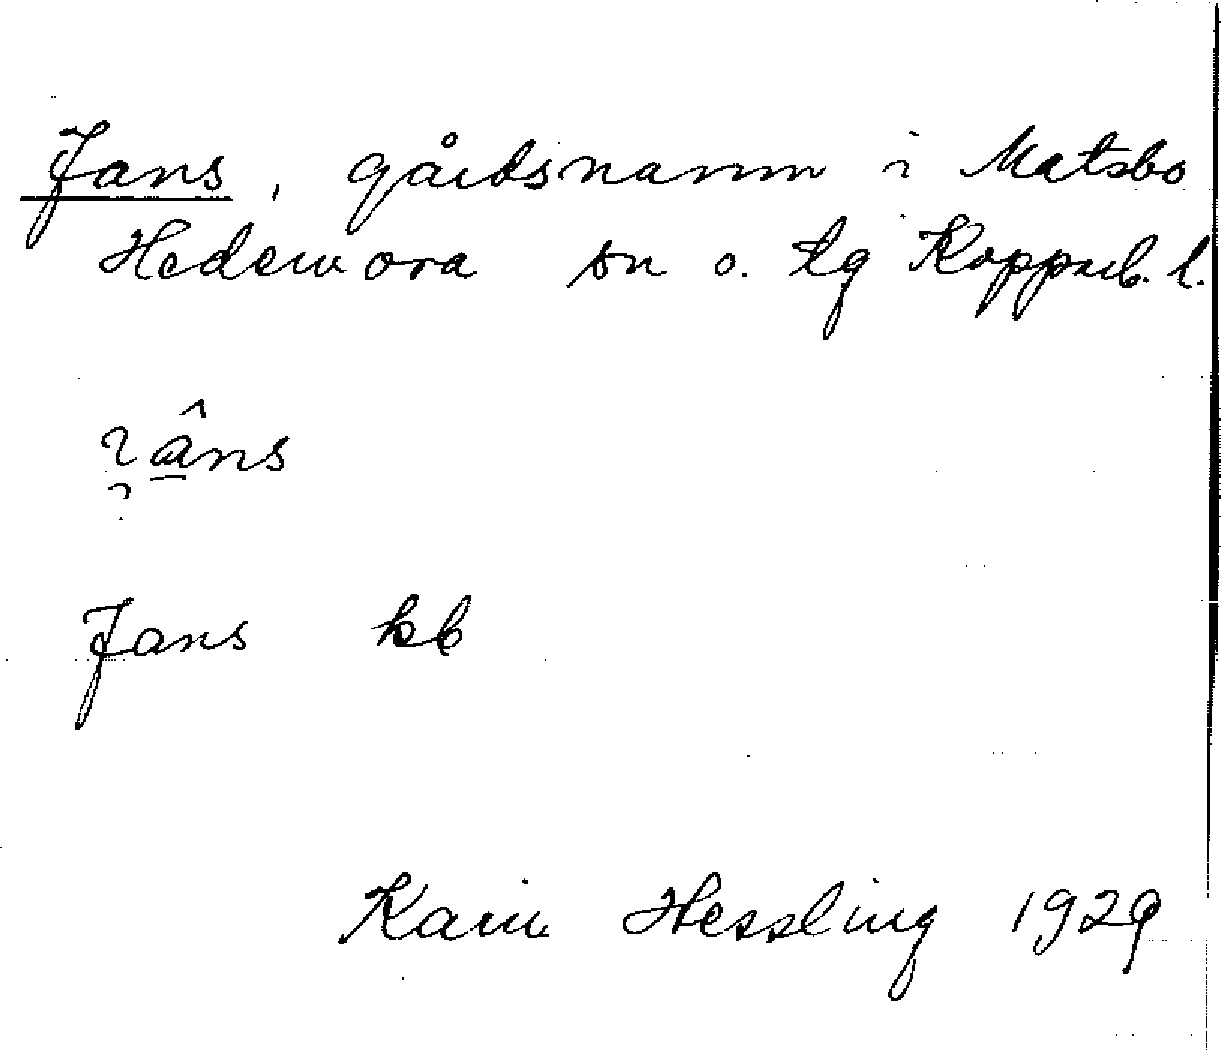 Jans, gårdsnamn i Matsbo
Hedemora sn o. tg Kopparb. l.
Jans kb
Karin Hessling 1929